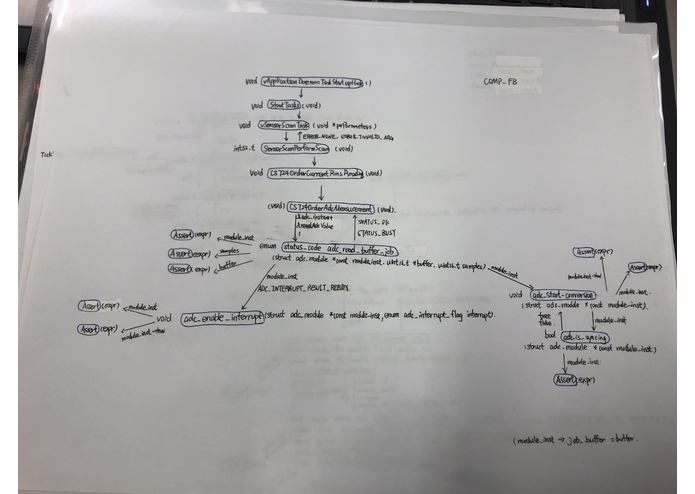 void vApplicationDaemonTaskStartupHook()
COMP_FB
void StartTasks (void)
void vSensorScanTask (void *pvParameters)
ERROR_NONE ERROR_INVALID_ARG
int32_t SensorScanPerformScan (void)
Task'
void CS724OrderCurrentRmsReading (void)
(void) CS724OrderAdcMeasurement (void).
&adc_instance
&readAdcValue
1
STATUS_OK
STATUS_BUSY
Assert (expr) module_inst
enum status_code adc_read_buffer_job
Assert (expr) samples
(struct adc_module *const module_inst. uint16_t *buffer. uint16_t samples)
Assert (expr) buffer
module_inst
Assert(expr)
Assert(expr)
module_inst
ADC_INTERRUPT_RESULT_READY
module_inst->hw
module_inst.
void adc_start_conversion
(struct adc_module *const module_inst).
Assert (expr) module_inst
void adc_enable_interrupt (struct adc_module *const module_inst, enum adc_interrupt_flag interrupt).
Assert (expr)
module_inst->hw
true
false.
module_inst
bool adc_is_syncing
(struct adc_module *const module_inst)
module_inst
Assert(expr)
(module_inst → job_buffer = buffer.